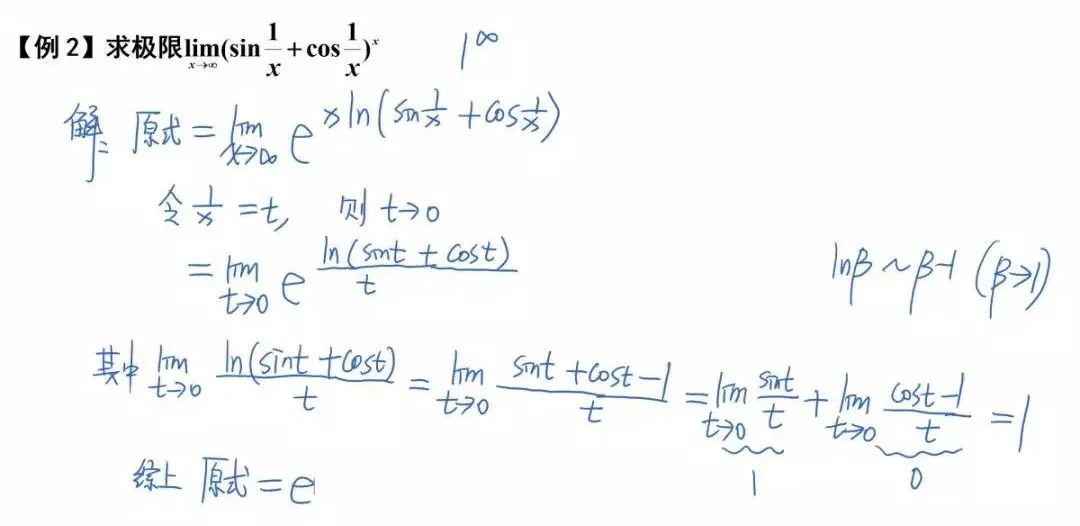 【例 2】求极限lim(sin 1/x + cos 1/x)^x x→∞ 1^∞
解: 原式 = lim x→∞ e^(x ln(sin 1/x + cos 1/x))
令 1/x = t, 则 t→0
= lim t→0 e^(ln(sint + cost)/t) lnβ ~ β-1 (β→1)
其中 lim t→0 ln(sint + cost)/t = lim t→0 (sint + cost - 1)/t = lim t→0 sint/t + lim t→0 (cost - 1)/t = 1
1 0
综上 原式 = e